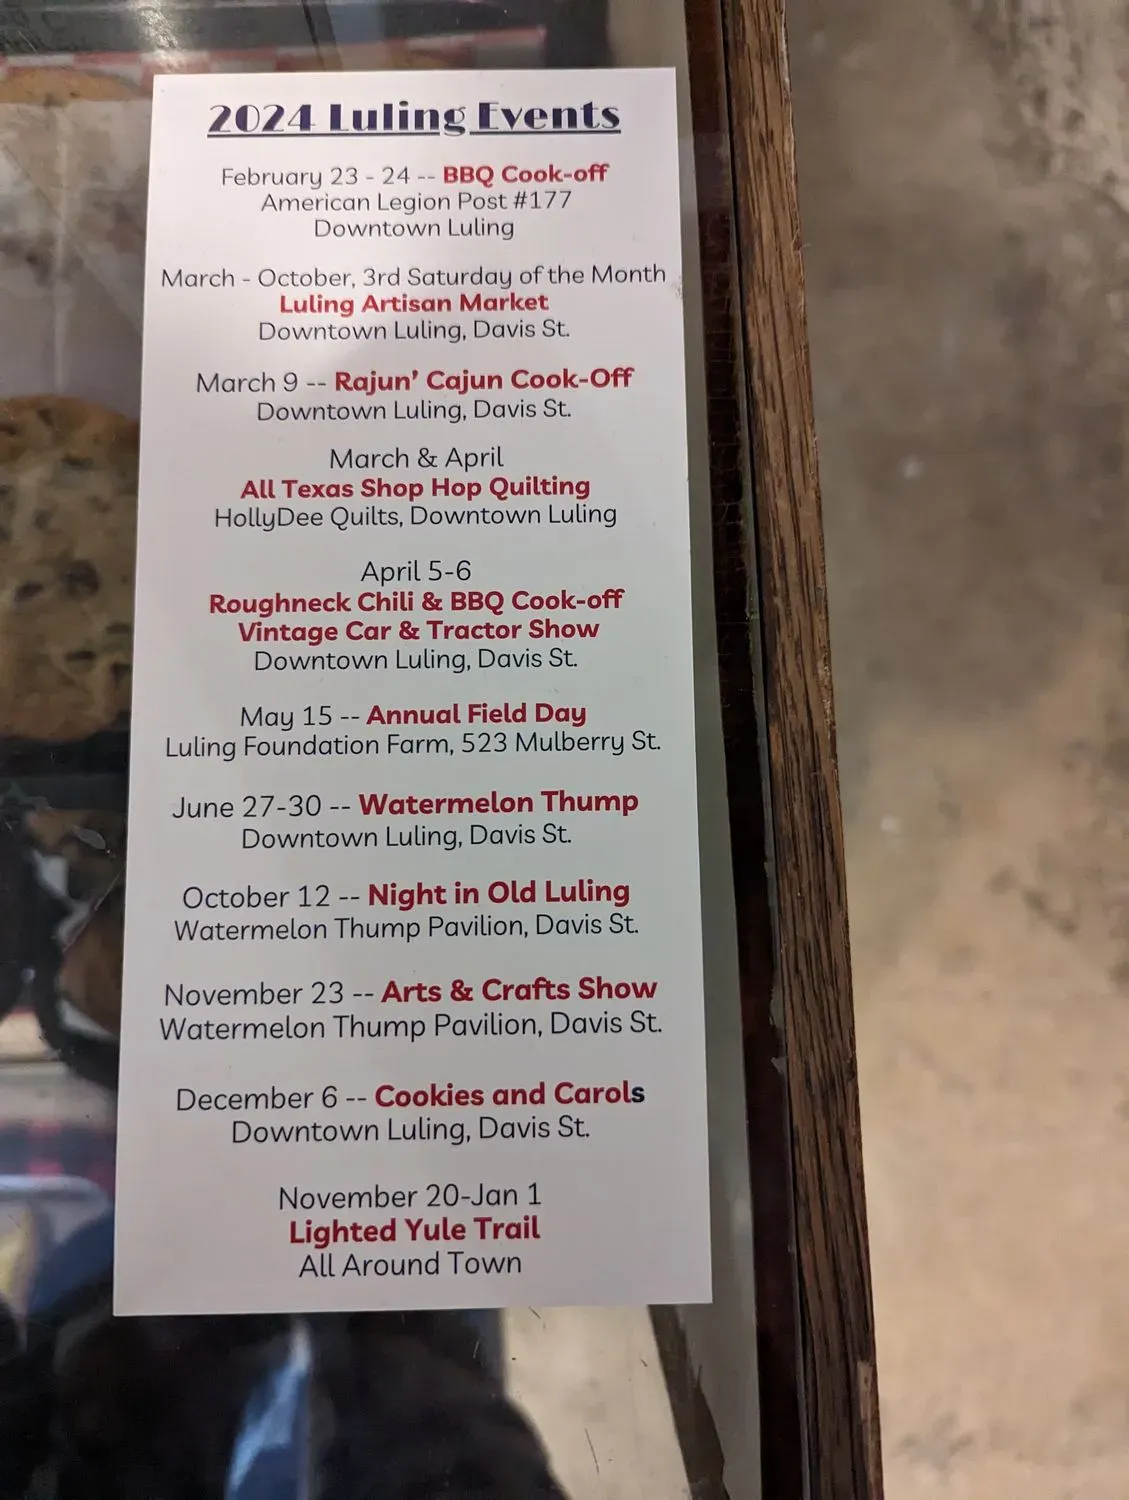 2024 Luling Events
February 23 - 24 -- BBQ Cook-off
American Legion Post #177
Downtown Luling
March - October, 3rd Saturday of the Month
Luling Artisan Market
Downtown Luling, Davis St.
March 9 -- Rajun' Cajun Cook-Off
Downtown Luling, Davis St.
March & April
All Texas Shop Hop Quilting
HollyDee Quilts, Downtown Luling
April 5-6
Roughneck Chili & BBQ Cook-off
Vintage Car & Tractor Show
Downtown Luling, Davis St.
May 15 -- Annual Field Day
Luling Foundation Farm, 523 Mulberry St.
June 27-30 -- Watermelon Thump
Downtown Luling, Davis St.
October 12 -- Night in Old Luling
Watermelon Thump Pavilion, Davis St.
November 23 -- Arts & Crafts Show
Watermelon Thump Pavilion, Davis St.
December 6 -- Cookies and Carols
Downtown Luling, Davis St.
November 20-Jan 1
Lighted Yule Trail
All Around Town